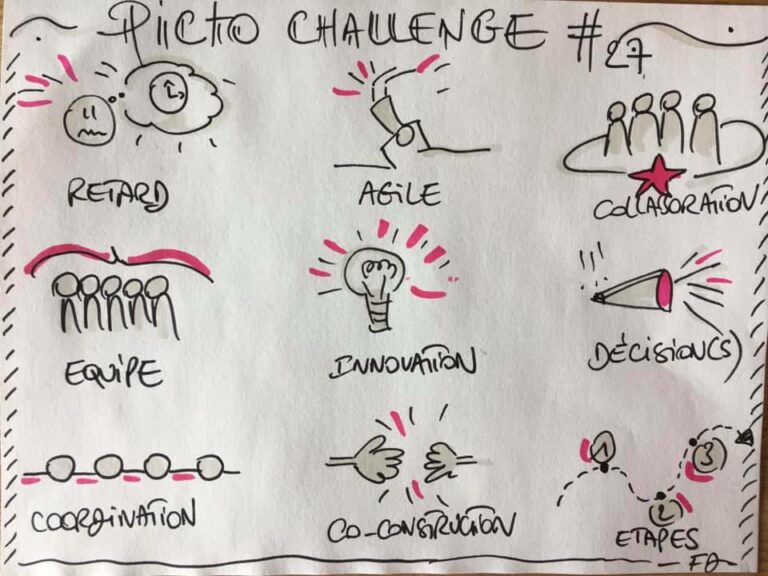 PICTO CHALLENGE #27
RETARD
AGILE
COLLABORATION
EQUIPE
INNOVATION
DÉCISION(S)
COORDINATION
CO-CONSTRUCTION
1
2
3
ETAPES